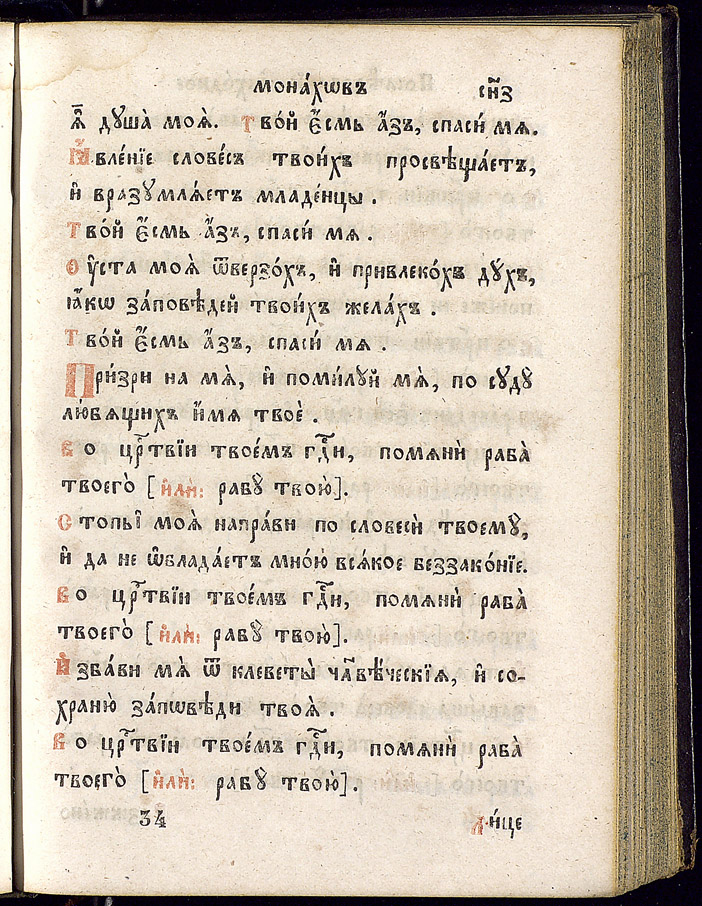 мона́хѡвъ сн҃з
ѧ҆̀ дꙋша̀ моѧ̀. Тво́й є҆́смь а҆́зъ, спаси́ мѧ.
Ꙗ҆вле́нїе слове́съ твои́хъ просвѣща́етъ,
и҆ вразꙋмлѧ́етъ младе́нцы.
Тво́й є҆́смь а҆́зъ, спаси́ мѧ.
Оу҆ста моѧ̀ ѿверзо́хъ, и҆ привлеко́хъ дꙋ́хъ,
ꙗ҆́кѡ за́повѣдей твои́хъ жела́хъ.
Тво́й є҆́смь а҆́зъ, спаси́ мѧ.
При́зри на мѧ̀, и҆ поми́лꙋй мѧ̀, по сꙋдꙋ̀
лю́бѧщихъ и҆́мѧ твоѐ.
Во црⷭ҇твїи твое́мъ гдⷭ҇и, помѧнѝ раба̀
твоего̀ [и҆лѝ: рабꙋ̀ твою̀].
Стопы̑ моѧ̀ напра́ви по словесѝ твоемꙋ̀,
и҆ да не ѡ҆блада́етъ мно́ю всѧ́кое беззако́нїе.
Во црⷭ҇твїи твое́мъ гдⷭ҇и, помѧнѝ раба̀
твоего̀ [и҆лѝ: рабꙋ̀ твою̀].
И҆зба́ви мѧ̀ ѿ клеветы̀ чл҃вѣ́ческїѧ, и҆ со-
храню̀ за́пѡвѣди твоѧ̀.
Во црⷭ҇твїи твое́мъ гдⷭ҇и, помѧнѝ раба̀
твоего̀ [и҆лѝ: рабꙋ̀ твою̀].
34 л-и́це